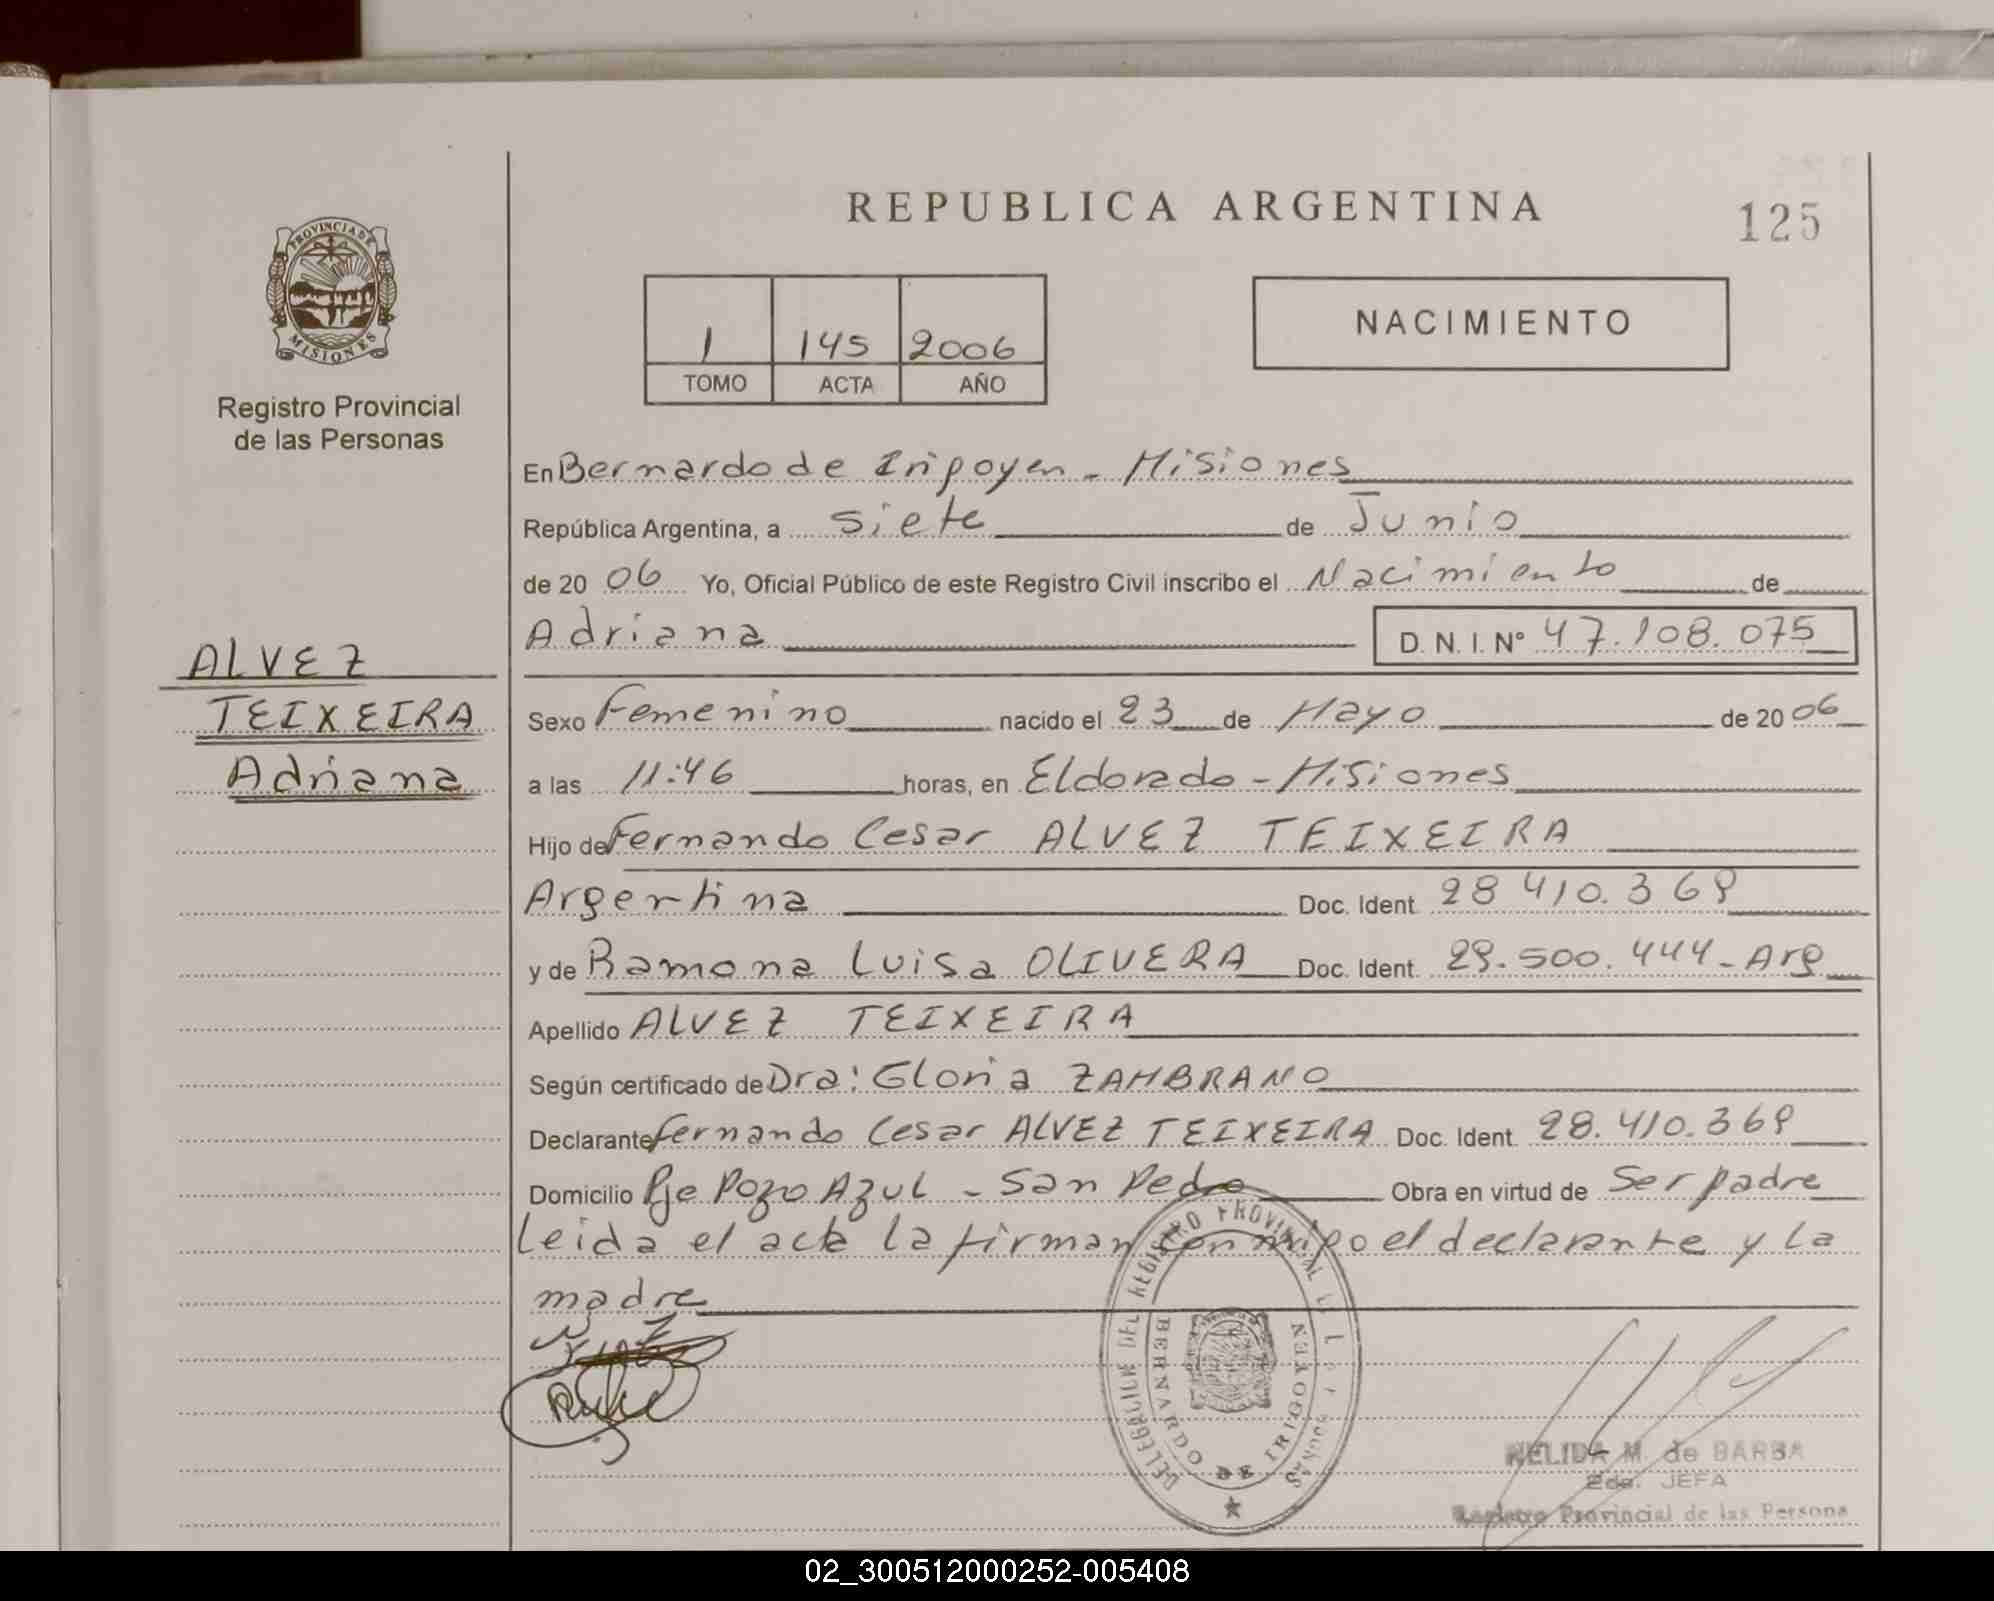 REPUBLICA ARGENTINA
125
PROVINCIA DE MISIONES
Registro Provincial
de las Personas
1 145 2006
TOMO ACTA AÑO
NACIMIENTO
En Bernardo de Irigoyen - Misiones
República Argentina, a siete de Junio
de 2006 Yo, Oficial Público de este Registro Civil inscribo el Nacimiento de
Adriana D. N. I. N° 47.108.075
ALVEZ
TEIXEIRA
Adriana
Sexo Femenino nacido el 23 de Mayo de 2006
a las 11:46 horas, en Eldorado - Misiones
Hijo de Fernando Cesar ALVEZ TEIXEIRA
Argentina Doc. Ident. 28 410.369
y de Ramona Luisa OLIVERA Doc. Ident. 29.500.444 - Arg
Apellido ALVEZ TEIXEIRA
Según certificado de Dra: Gloria ZAMBRANO
Declarante Fernando Cesar ALVEZ TEIXEIRA Doc. Ident. 28.410.369
Domicilio Pje Pozo Azul - San Pedro Obra en virtud de Ser padre
Leida el acta la firman conmigo el declarante y la
madre
DELEGACION DEL REGISTRO PROVINCIAL DE LAS PERSONAS
BERNARDO DE IRIGOYEN
NELIDA M. de BARBA
2da. JEFA
Registro Provincial de las Persona
02_300512000252-005408